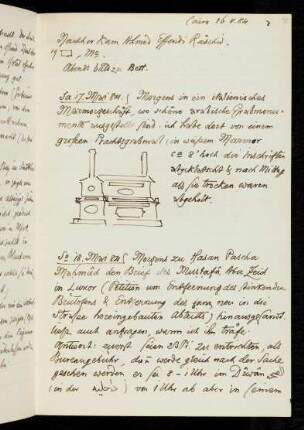 Cairo 16.V.84
Nachher kam Ahmed Effendi
Abends bald zu Bett.
Sa 17. Mai 84. | Morgens in ein italienisches
Marmorgeschäft, wo schöne arabische Grabmonu-
mente ausgestellt sind. ich habe dort von einem
großen Prachtgrabmal in weißem Marmor
ca 8' hoch der Inschriften
abgeklatscht & nach Mittag
als sie trocken waren
abgeholt.
So 18. Mai 84 | Morgens zu Hasan Pascha
Mahmud den Brief des Mustafa Abu Zeid
in Luxor (Petition um Entfernung des stinkenden
& Entfernung des ganz neu in die
Straße hereingebauten Abtritts) hinausgeführt.
ließ auch anfragen, wann ich ihn träfe.
Antwort: zuerst seien zu entrichten, als
Bureaugebühr, dann werde gleich nach der Sache
gesehen werden er sei 8 - 1 Uhr im Diwân
(in der ) von 1 Uhr ab aber in seinem